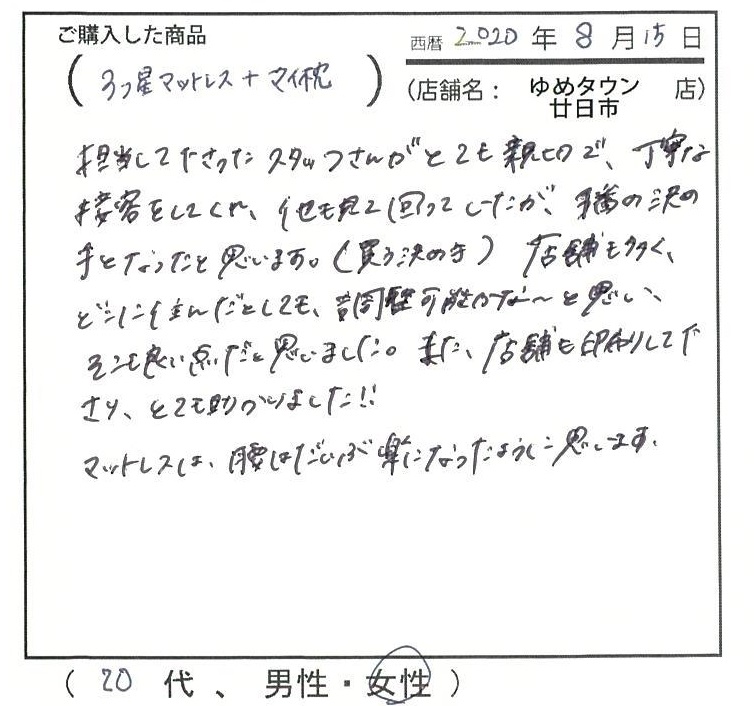 ご購入した商品
西暦 2020 年 8 月 15 日
(3つ星マットレス+マイ枕)
(店舗名: ゆめタウン廿日市 店)
担当して下さったスタッフさんがとても親切で、丁寧な
接客をしてくれ、他も見て回ってしたが、1番の決め
手となったと思います。(買う決め手) 店舗も多く、
どこに住んだとしても、調整可能かな〜と思い、
そこも良い点だと思いました。また、店舗も印刷して下
さり、とても助かりました!!
マットレスは、腰はだいぶ楽になったように思います。
(20 代、男性・女性)